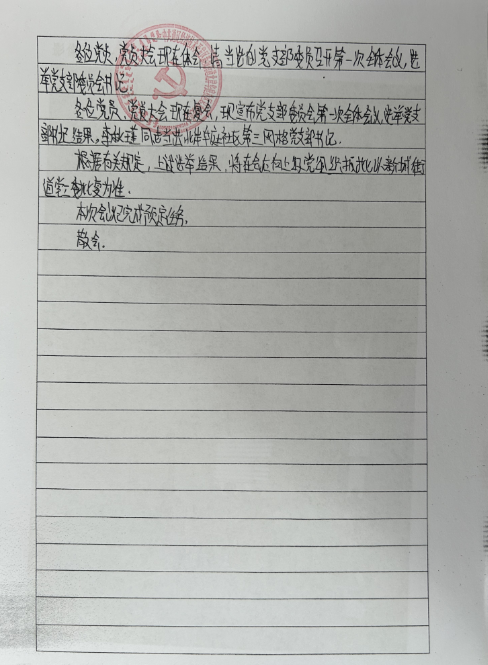 各位党员，党员大会现在休会，请当选的党支部委员召开第一次全体会议，选
举党支部委员会书记。
各位党员，党员大会现在复会，现宣布党支部委员会第一次全体会议选举党支
部书记结果，李 同志当选 社区第三网格党支部书记。
根据有关规定，上述选举结果，将在会后向上级党组织报批，以 街
道党工委批复为准。
本次会议已完成预定任务。
散会。